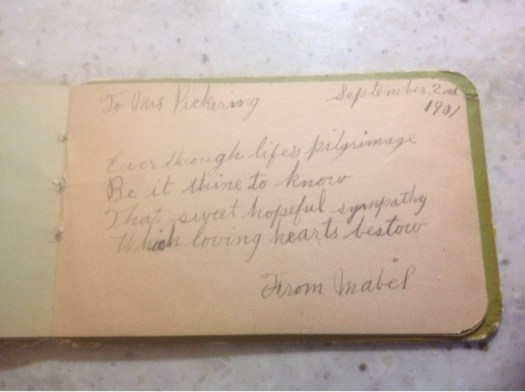 To Mrs Pickering
September, 2nd
1901
Ever through life's pilgrimage
Be it thine to know
That sweet hopeful sympathy
Which loving hearts bestow
From Mabel